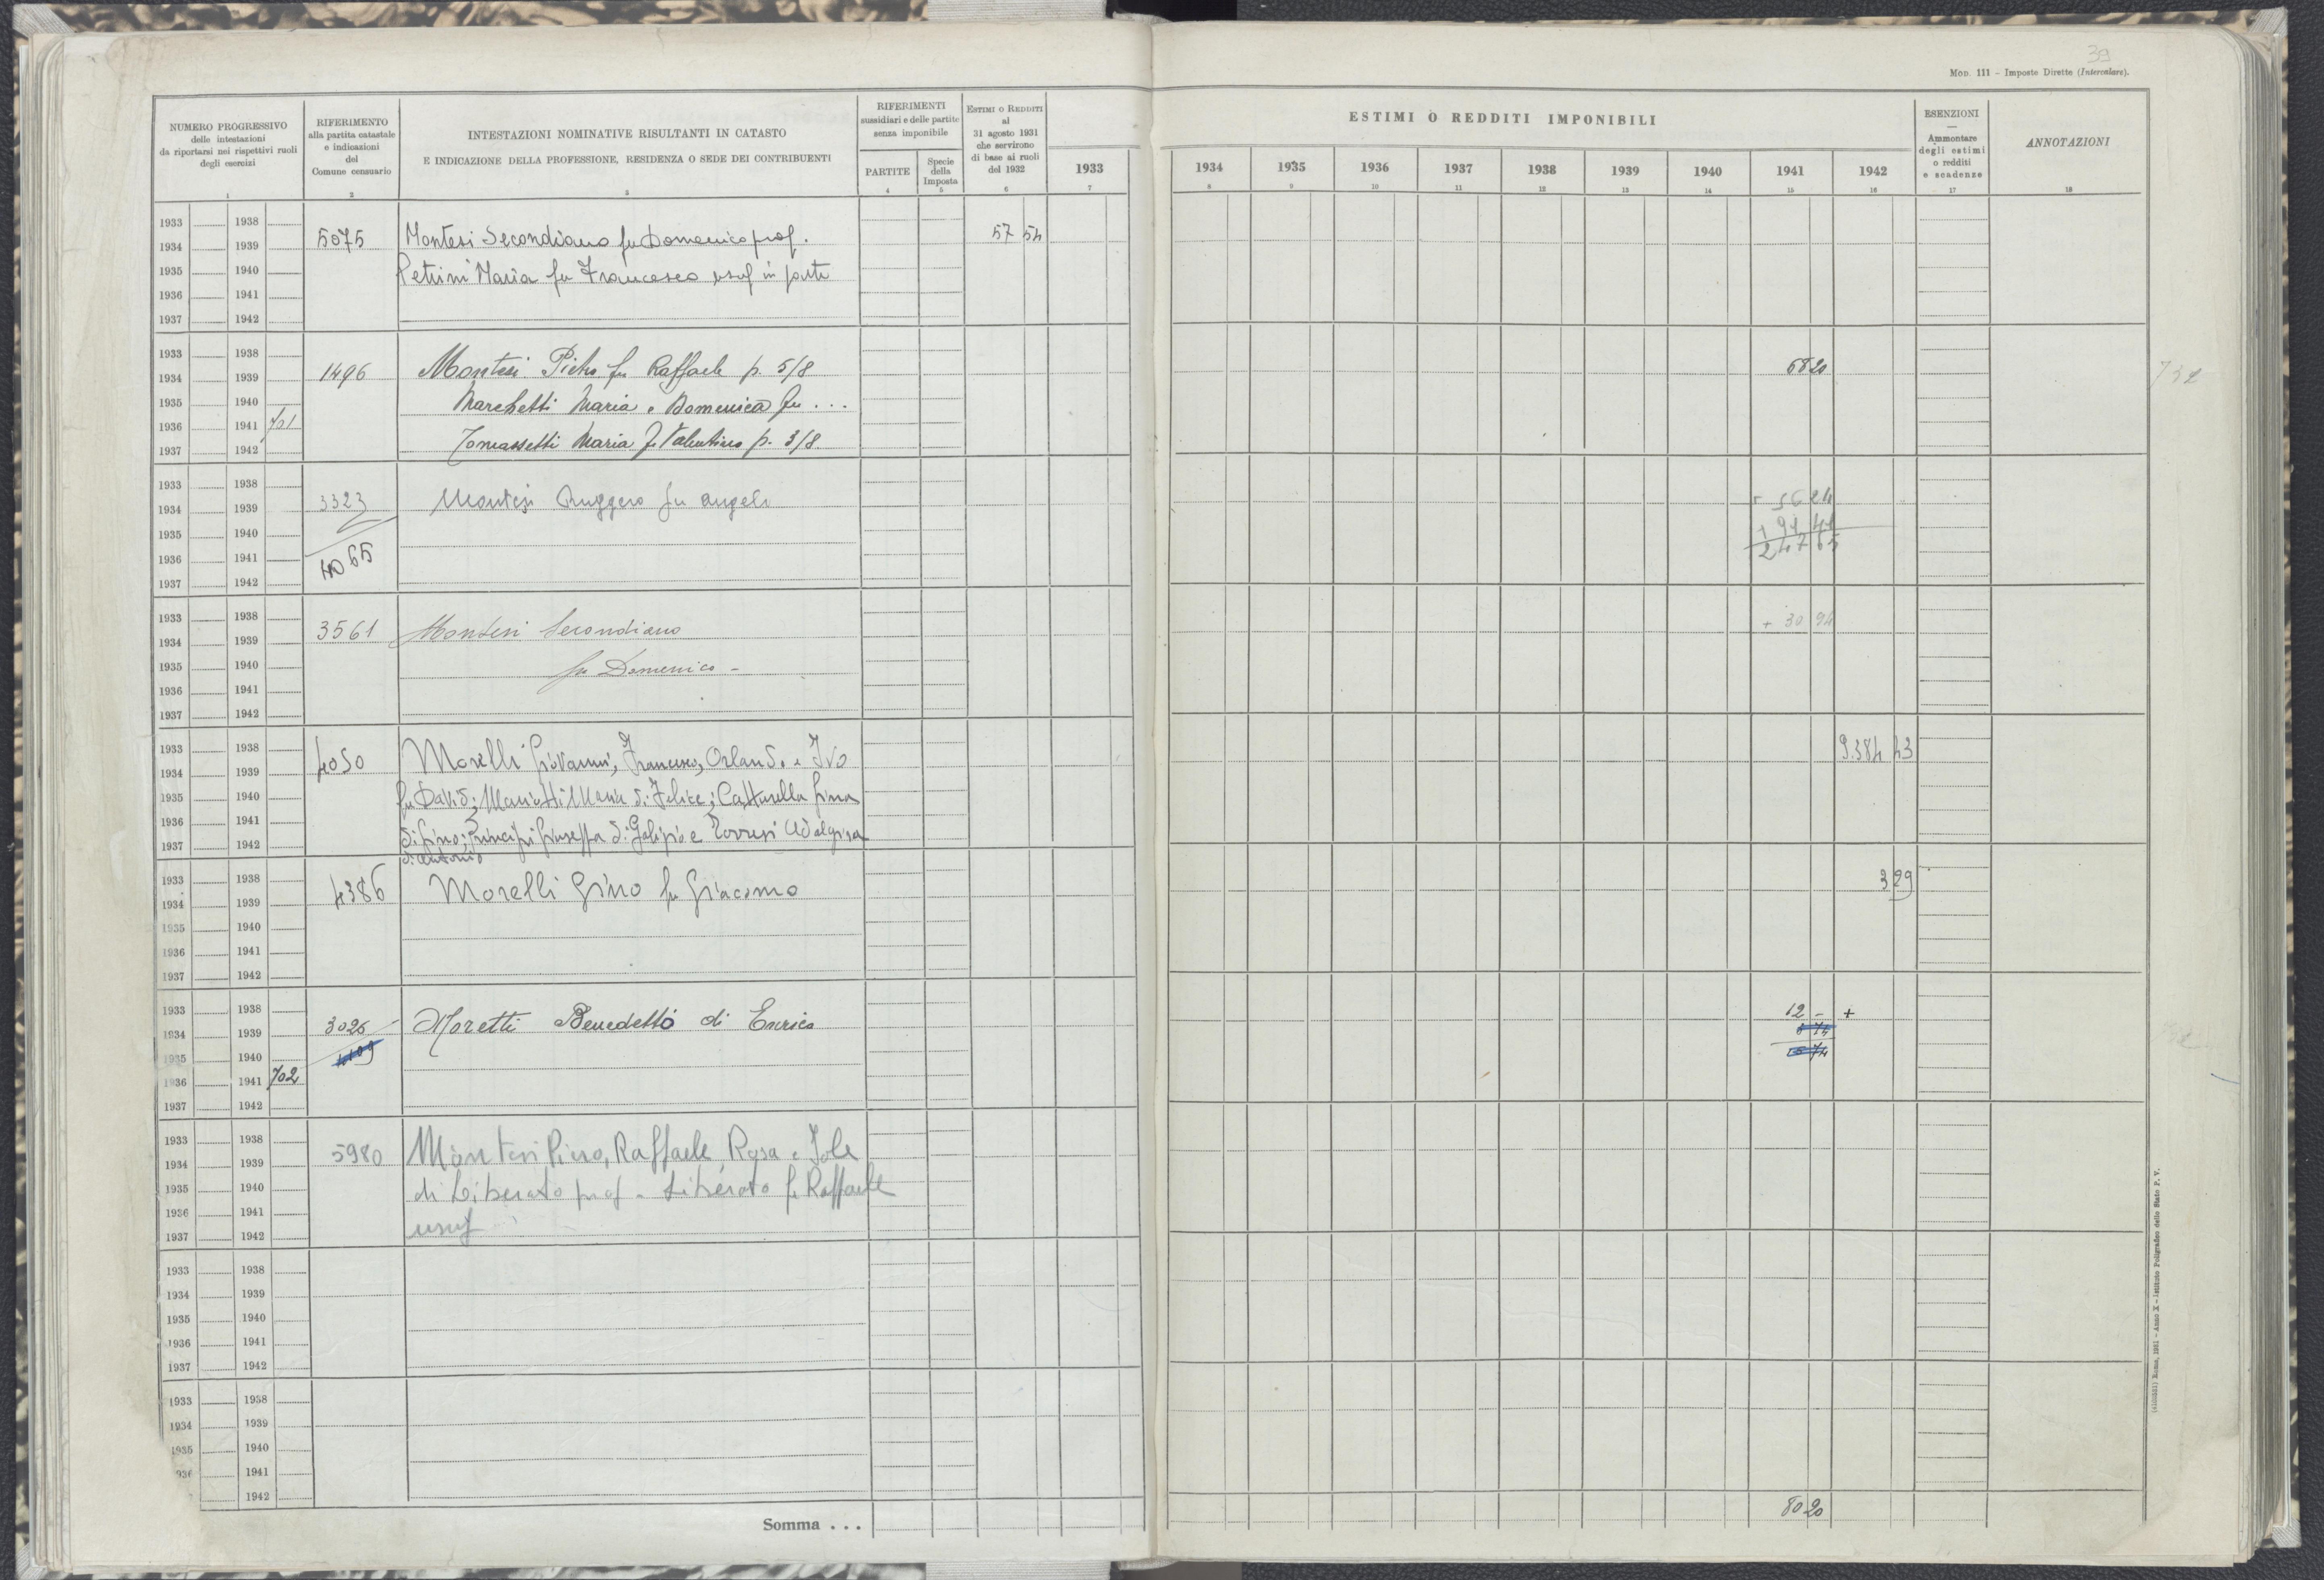 39
MOD. 111 - Imposte Dirette (Intercalare).
NUMERO PROGRESSIVO
delle intestazioni
da riportarsi nei rispettivi ruoli
degli esercizi
1
RIFERIMENTO
alla partita catastale
e indicazioni
del
Comune censuario
2
INTESTAZIONI NOMINATIVE RISULTANTI IN CATASTO
E INDICAZIONE DELLA PROFESSIONE, RESIDENZA O SEDE DEI CONTRIBUENTI
3
RIFERIMENTI
sussidiari e delle partite
senza imponibile
PARTITE
4
Specie
della
Imposta
5
ESTIMI O REDDITI
al
31 agosto 1931
che servirono
di base ai ruoli
del 1932
6
1933
7
ESTIMI O REDDITI IMPONIBILI
1934 1935 1936 1937 1938 1939 1940 1941 1942
8 9 10 11 12 13 14 15 16
ESENZIONI
—
Ammontare
degli estimi
o redditi
e scadenze
17
ANNOTAZIONI
18
1933 1938
1934 1939 5075 Montesi Secondiano fu Domenico prof. 57 54
1935 1940 Petrini Maria fu Francesco usuf in parte
1936 1941
1937 1942
1933 1938
1934 1939 1496 Montesi Pietro fu Raffaele p. 5/8 68 20
1935 1940 Marchetti Maria e Domenica fu ...
1936 1941 701
1937 1942 Tomassetti Maria f. Valentino p. 3/8.
1933 1938
1934 1939 3323 Montesi Ruggero fu Angelo
1935 1940 + 91 41
1936 1941 4065 247 65
1937 1942
1933 1938
1934 1939 3561 Montesi Secondiano + 30 94
1935 1940 fu Domenico -
1936 1941
1937 1942
1933 1938
1934 1939 4050 Morelli Giovanni, Francesco, Orlando e Ivo 9.384 43
1935 1940 fu David; Mariotti Maria di Felice; Catturella Gina
1936 1941
1937 1942 di Gino; Principi Giuseppa di Galipio e Torresi Adalgisa
di Antonio
1933 1938
1934 1939 4386 Morelli Gino fu Giacomo 3 29
1935 1940
1936 1941
1937 1942
1933 1938
1934 1939 3026 Moretti Benedetto di Enrico 12 - +
1935 1940 4109
1936 1941 702
1937 1942
1933 1938
1934 1939 5980 Montesi Pino, Raffaele, Rosa e Iole
1935 1940 di Liberato prof - Liberato fu Raffaele
1936 1941 usuf
1937 1942
1933 1938
1934 1939
1935 1940
1936 1941
1937 1942
1933 1938
1934 1939
1935 1940
1941
1942
Somma ... 80 20
(4103551) Roma, 1931 - Anno X - Istituto Poligrafico dello Stato P. V.